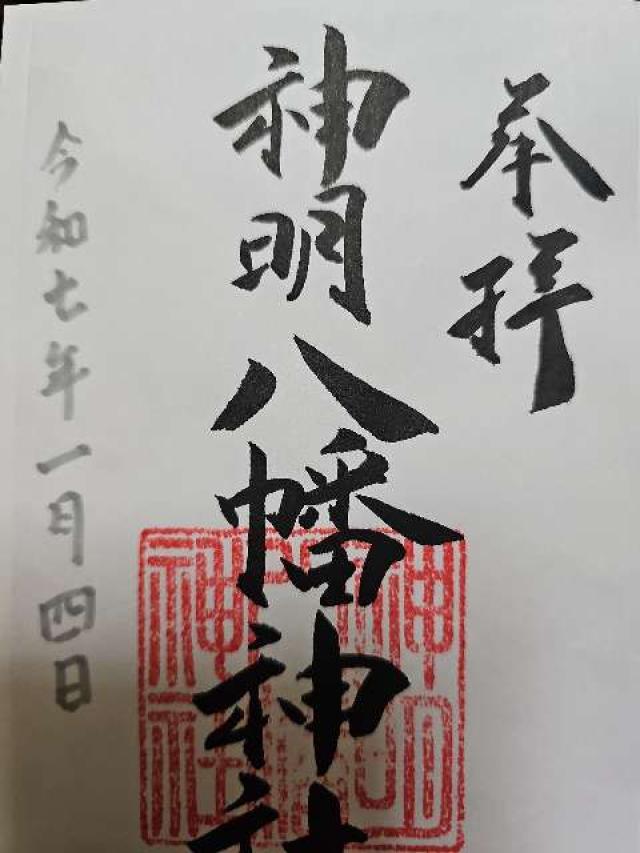 奉拝
神明八幡神社
令和七年一月四日